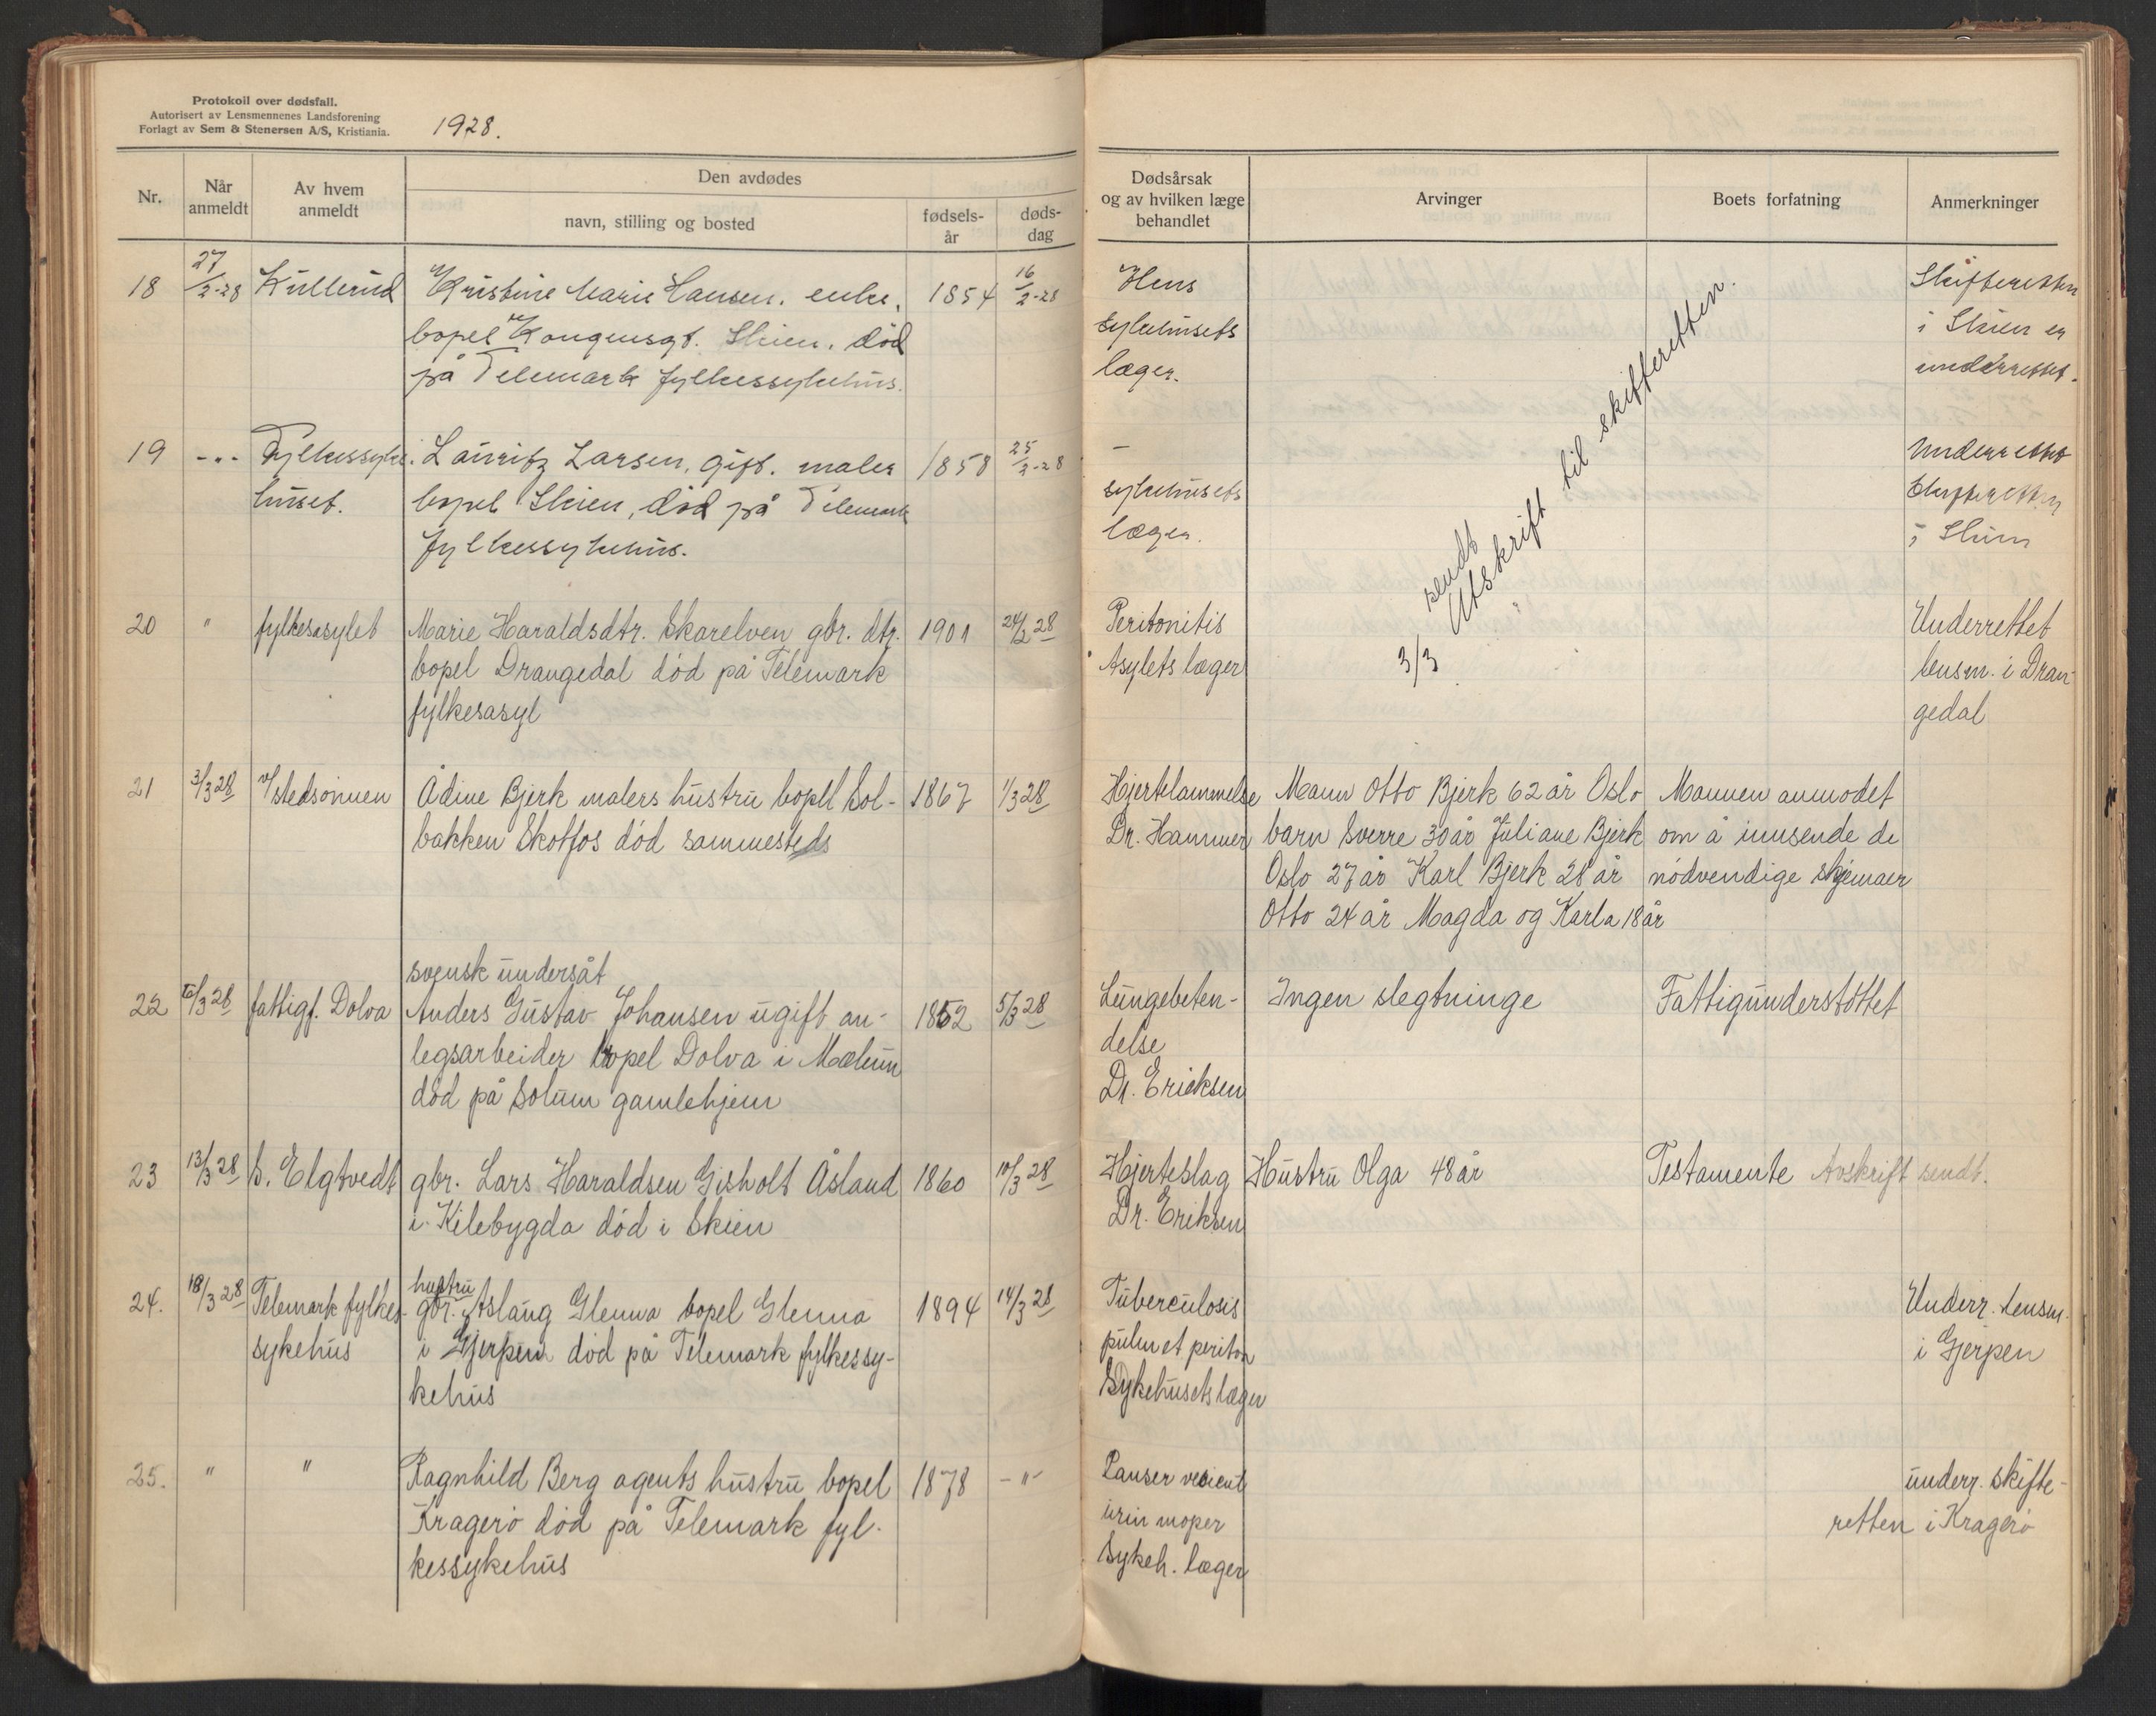 Protokoll over dødsfall.
Autorisert av Lensmennenes Landsforening
Forlagt av Sem & Stenersen A/S, Kristiania.
1928.
Nr.
Når anmeldt
Av hvem anmeldt
Den avdødes
navn, stilling og bosted
fødsels-år
døds-dag
Dødsårsak
og av hvilken læge
behandlet
Arvinger
Boets forfatning
Anmerkninger
18 27/2-28 Kullerud Kristine Marie Hansen. enke. 1854 16/2-28 Skifteretten
bopel Kongensgt. Skien. død sykehusets i Skien er
på Telemark fylkessykehus. læger. underrettet.
19 -"- Fylkessyke- Lauritz Larsen, gift. maler 1858 25/2-28 — Underrettet
huset. bopel Skien, død på Telemark sykehusets skifteretten
fylkessykehus. læger. i Skien
sendt
3/3 Utskrift til skifteretten.
20 " fylkesasylet Marie Haraldsdtr. Skarelven gbr. dtr. 1901 24/2 28 Peritonitis Underrettet
bopel Drangedal död på Telemark Asylets læger lensm. i Dran-
fylkesasyl gedal
21 3/3 28 v/ stedsønnen Ådine Bjerk malers hustru bopel Sol- 1867 1/3 28 Hjertelammelse Mann Otto Bjerk 62 år Oslo Mannen anmodet
bakken Skotfos död sammesteds Dr. Hammer barn Sverre 30 år Juliane Bjerk om å innsende de
Oslo 27 år Karl Bjerk 28 år nödvendige skjemaer
Otto 24 år Magda og Karla 18 år
svensk undersåt
22 6/3 28 fattigf. Dolva Anders Gustav Johansen ugift an- 1852 5/3 28 Lungebeten- Ingen slegtninge Fattigunderstöttet
legsarbeider bopel Dolva i Mælum delse
död på Solum gamlehjem Dr. Ericksen
23 13/3 28 S. Elgtvedt gbr. Lars Haraldsen Gisholt Åsland 1860 10/3 28 Hjerteslag Hustru Olga 48 år Testamente Avskrift sendt.
i Kilebygda död i Skien Dr. Eriksen
hustru
24. 18/3 28 Telemark fylkes- gbr. Aslaug Glenna bopel Glenna 1894 14/3 28 Tuberculosis Underr. lensm.
sykehus i Gjerpen död på Telemark fylkessy- pulm et periton i Gjerpen
kehus Sykehusets læger
25. " " Ragnhild Berg agents hustru bopel 1878 -"- underr. skifte-
Kragerö död på Telemark fyl- retten i Kragerö
kessykehus Sykeh. læger